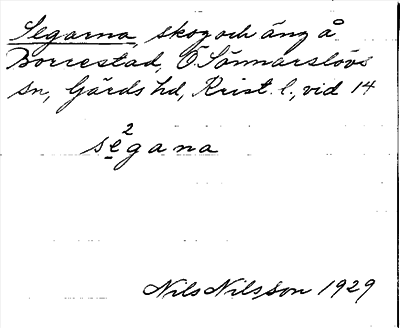 Segarna, skog och äng å
Borrestad, Ö Sönnarslövs
sn, Gärds hd, Krist. l., vid 14
se²gana
Nils Nilsson 1929